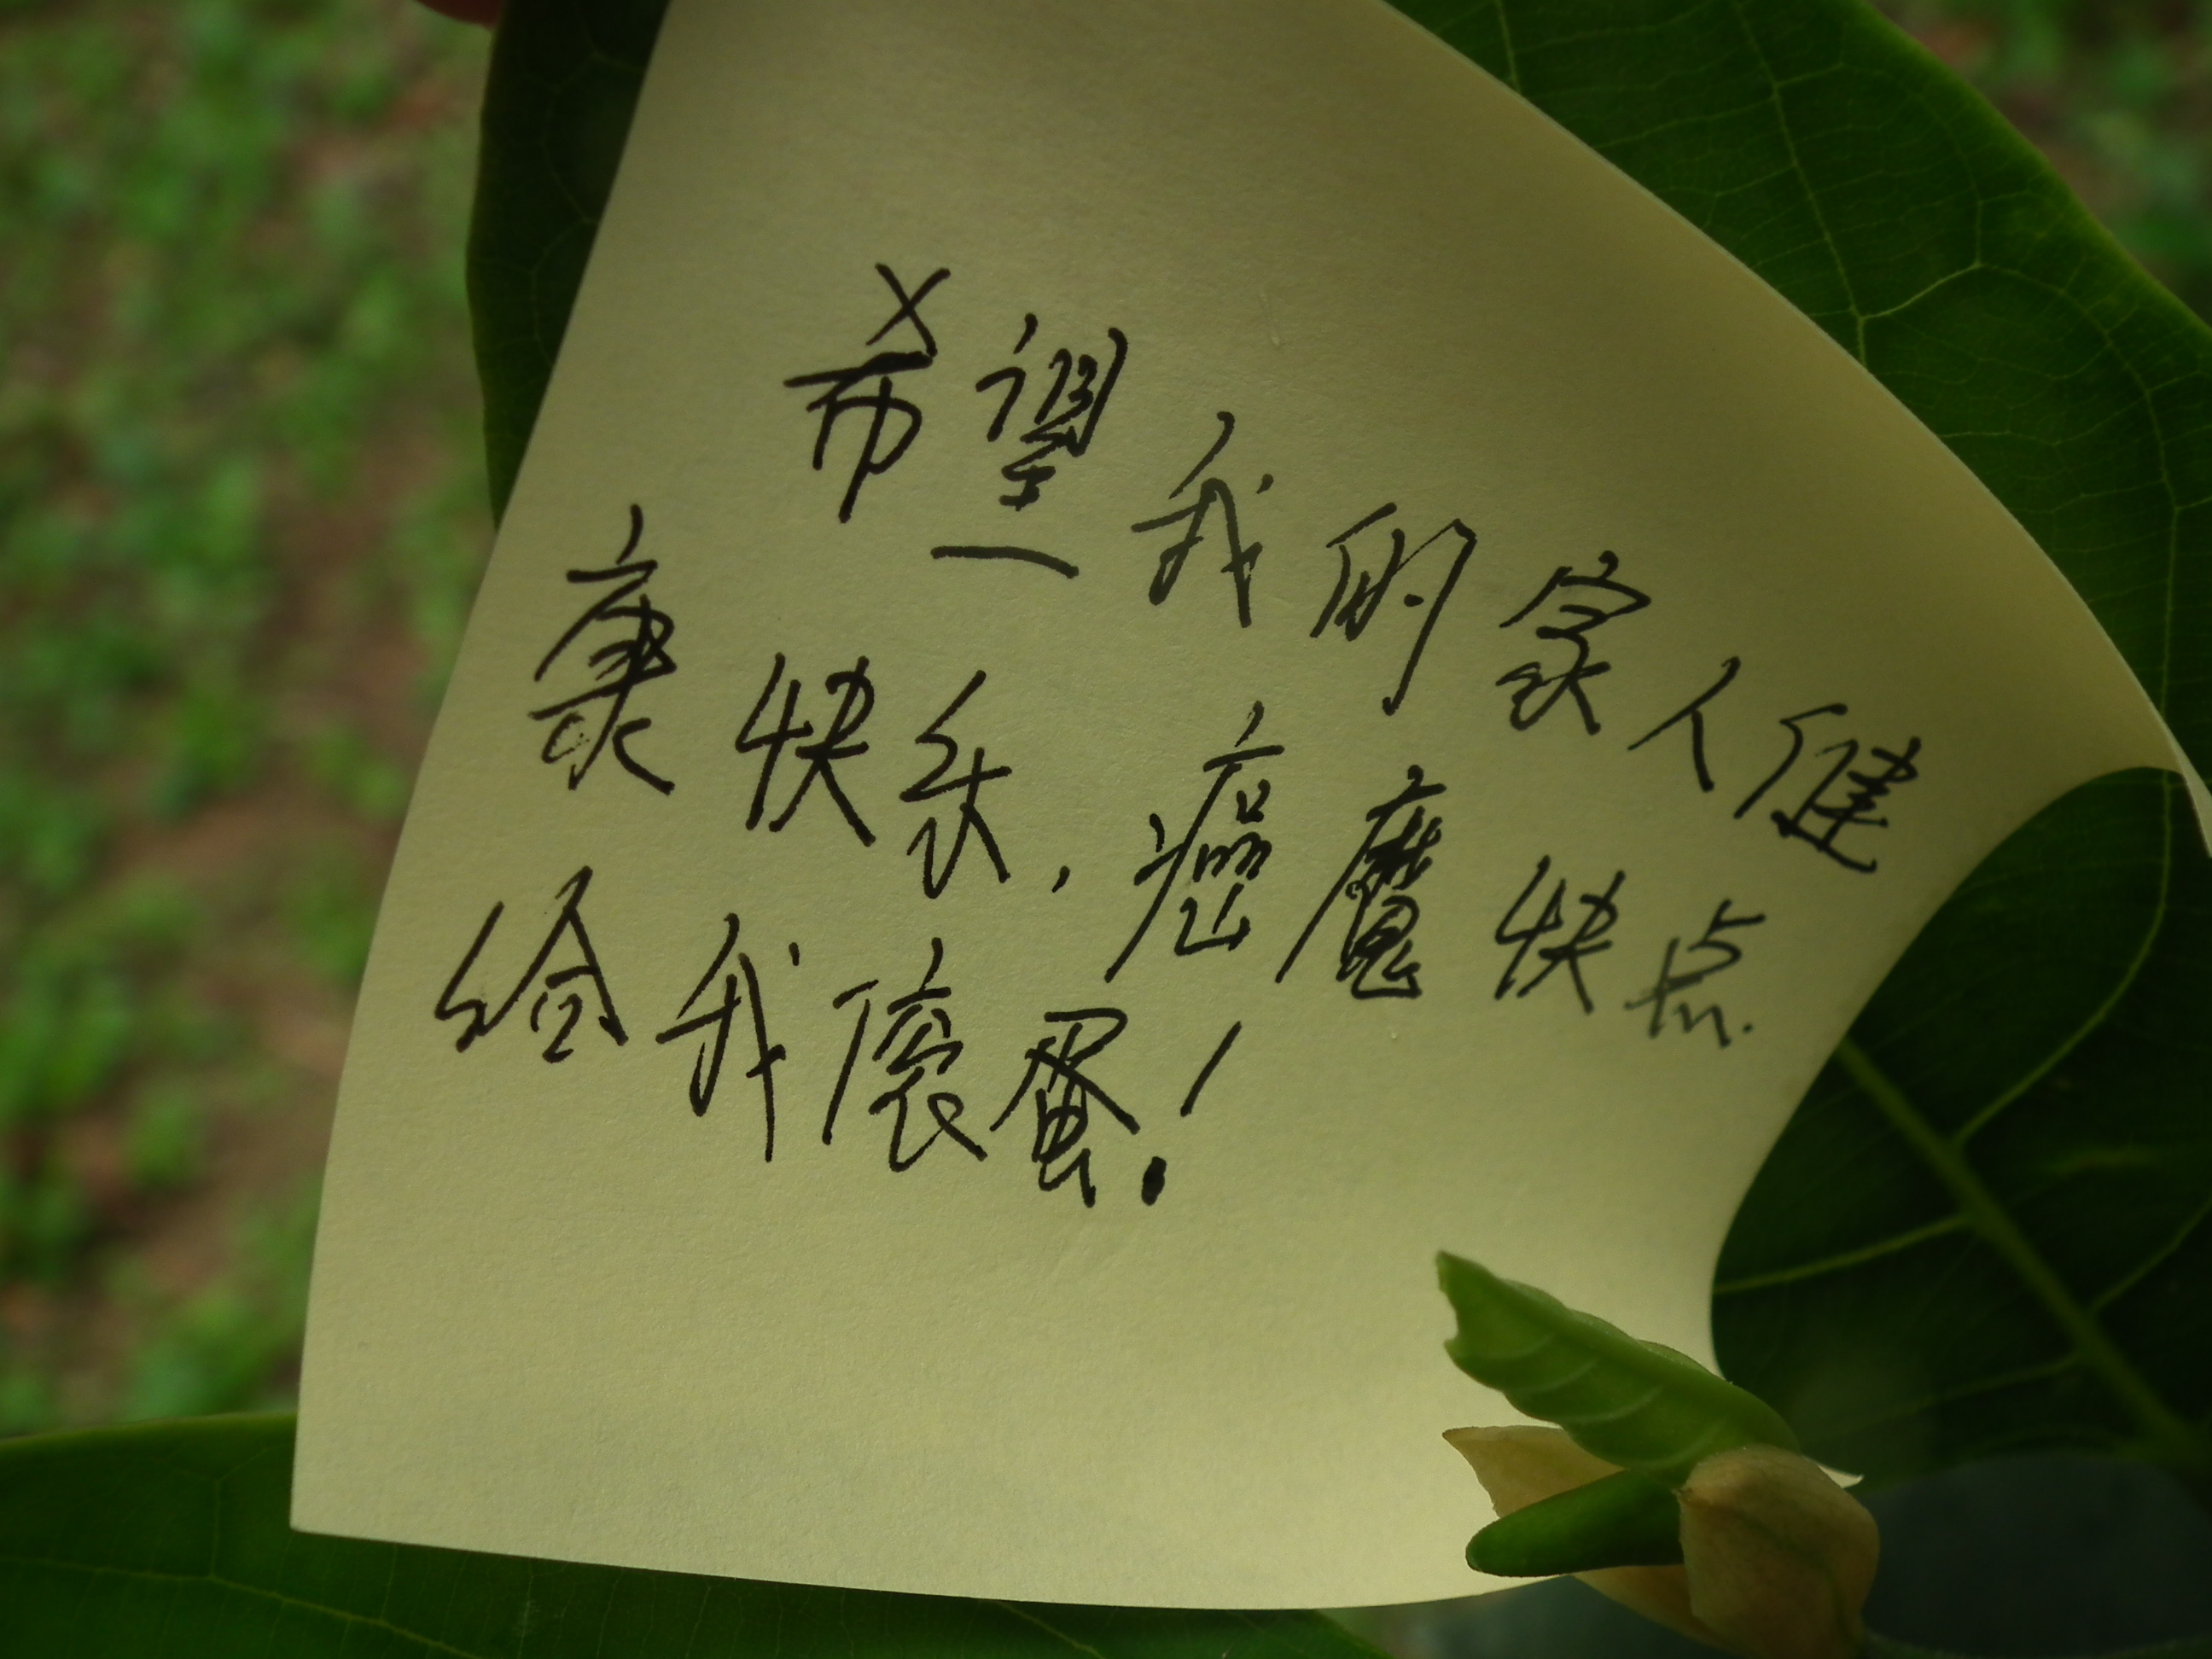 希望我的家人健
康快乐,癌魔快点
给我滚蛋!